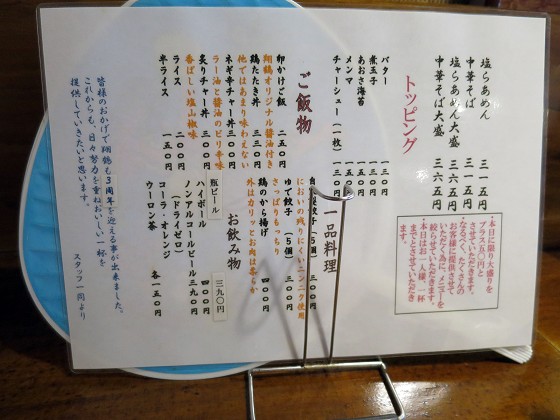 塩らあめん 三一五円
中華そば 三一五円
塩らあめん大盛 三六五円
中華そば大盛 三六五円
・本日に限り大盛りを
させていただきます。
プラス五〇円と
・なるべくたくさんの
お客様に提供させて
いただく為に、メニューを
絞らせていただきます。
・本日はお一人様、一杯
までとさせていただき
ます。
トッピング
バター 一三〇円
煮玉子 一一〇円
あおさ海苔 一五〇円
メンマ
チャーシュー(一枚) 一三〇円
一品料理
餃子(5個) 三〇〇円
においの残りにくいニンニク使用
ゆで餃子(5個) 三〇〇円
さっぱりもっちり
鶏のから揚げ 四〇〇円
外はカリッとお肉は柔らか
ご飯物
卵かけご飯 二五〇円
翔鶴オリジナル醤油付き
鶏たたき丼 三三〇円
他ではあまり味わえない
ネギ辛チャー丼 三〇〇円
ラー油と醤油のピリ辛味
炙りチャー丼 三〇〇円
香ばしい塩山椒味
ライス 二〇〇円
半ライス 一五〇円
お飲み物
瓶ビール 三九〇円
ハイボール 四〇〇円
ノンアルコールビール 三九〇円
(ドライゼロ)
コーラ・オレンジ
ウーロン茶 各一五〇円
皆様のおかげで翔鶴も3周年を迎える事が出来ました。
これからも、日々努力を重ねおいしい一杯を
提供していきたいと思います。
スタッフ一同より